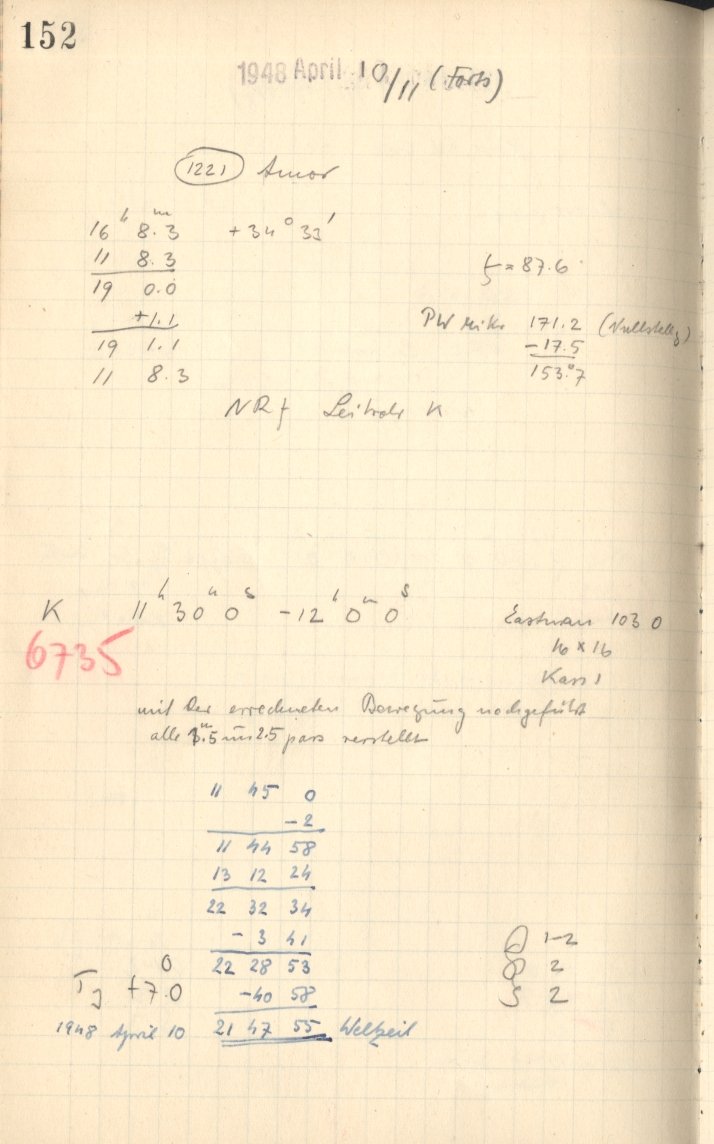 152
1948 April 10/11 (Forts)
1221 Amor
16 h 8.3 m +34° 33'
11 8.3
19 0.0
+1.1
19 1.1
11 8.3
ζ = 87.6
PW Mikr 171.2 (Nullstellg)
-17.5
153.°7
NRf Leitrohr K
K 11 h 30 m 0 s -12 h 0 m 0 s
6735
Eastman 103 0
16 x 16
Kass 1
mit der errechneten Bewegung nachgeführt
alle 3.5 m um 2.5 pars verstellt
11 45 0
-2
11 44 58
13 12 24
22 32 34
- 3 41
22 28 53
-40 58
1948 April 10 21 47 55 Weltzeit
0
+7.0
1-2
2
2